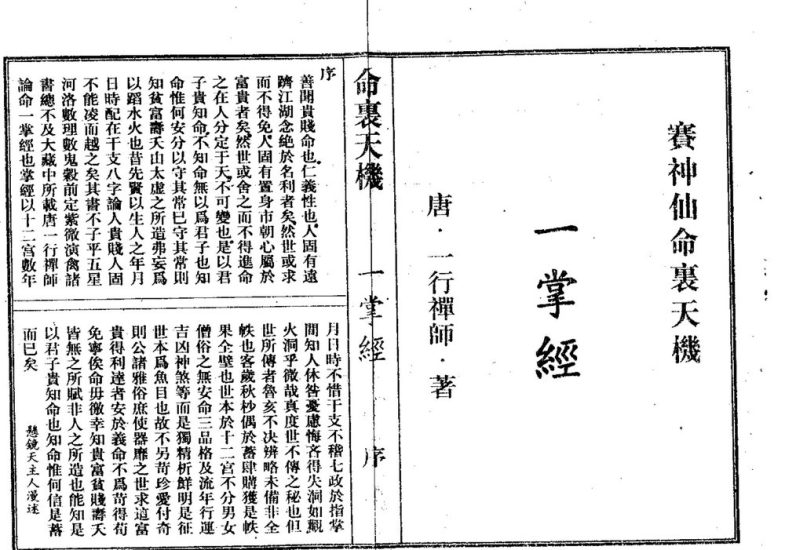 賽神仙命裏天機
一掌經
唐·一行禪師·著
命裏天機 一掌經 序
序
善聞貴賤命也仁義性也人固有遠
躋江湖念絕於名利者矣然世或求
而不得免人固有置身市朝心屬於
富貴者矣然世或舍之而不得進命
之在人分定于天不可變也是以君
子貴知命不知命無以爲君子也知
命惟何安分以守其常巳守其常則
知貧富壽夭山太虛之所造弗妄爲
以蹈水火也昔先賢以生人之年月
日時配在干支八字論人貴賤人固
不能凌而越之矣其書不子平五星
河洛數理數鬼穀前定紫微演禽諸
書總不及大藏中所載唐一行禪師
論命一掌經也掌經以十二宮數年
月日時不惜干支不稽七政於指掌
間知人休咎憂慮悔吝得失洞如觀
火洞乎微哉真度世不傳之秘也但
世所傳者魯亥不决辨略未備非全
帙也客歲秋杪偶於蓄肆購獲是帙
果全壁也世本於十二宮不分男女
僧俗之無安命三品格及流年行運
吉凶神煞等而是獨精析鮮明是征
世本爲魚目也故不另苛珍愛付奇
則公諸雅俗庶使器靡之世求這富
貴得利達者安於義命不爲苛得苟
免寧俟命毋徼幸知貴富貧賤壽夭
皆無之所賦非人之所造也能知是
以君子貴知命也知命惟何信是蓄
而已矣
懸鏡天主人漫述